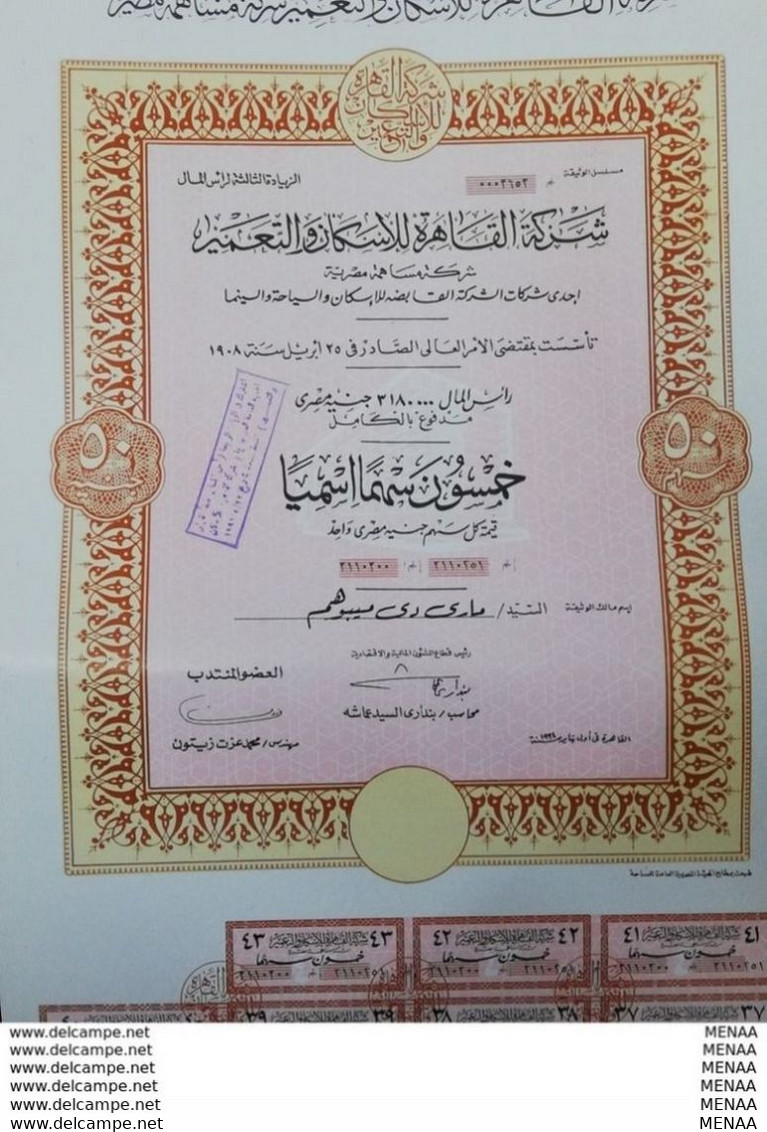 شركة القاهرة للاسكان والتعمير شركة مساهمة مصرية
شركة القاهرة
للاسكان
والتعمير
مسلسل الوثيقة نمرة ٠٠٠٣٦٥٣
الزيادة الثالثة لرأس المال
شركة القاهرة للاسكان والتعمير
شركة مساهمة مصرية
إحدى شركات الشركة القابضة للإسكان والسياحة والسينما
تأسست بمقتضى الأمر العالى الصادر فى ٢٥ ابريل سنة ١٩٠٨
رأس المال ٣١٨٠٠٠٠٠ جنيه مصرى
مدفوع بالكامل
٥٠ جنيه
٥٠ سهم
خمسون سهمًا اسميًا
قيمة كل سهم جنيه مصرى واحد
٢١١٠٢٥١ ٢١١٠٣٠٠
إسم مالك الوثيقة السيد/ مارى دى
رئيس قطاع الشئون المالية والاقتصادية
العضو المنتدب
محاسب/ بندارى السيد عماشه
مهندس/ محمد عزت زيتون
القاهرة فى أول يناير سنة
طبعت بمطابع الهيئة المصرية العامة للمساحة
٤٣ شركة القاهرة للاسكان والتعمير ٤٣
خمسون سهما
٢١١٠٣٠٠ ٢١١٠٢٥١
٤٢ شركة القاهرة للاسكان والتعمير ٤٢
خمسون سهما
٢١١٠٣٠٠ ٢١١٠٢٥١
٤١ شركة القاهرة للاسكان والتعمير ٤١
خمسون سهما
٢١١٠٣٠٠ ٢١١٠٢٥١
٣٩ ٣٩
٣٨ ٣٨
٣٧ ٣٧
www.delcampe.net MENAA
www.delcampe.net MENAA
www.delcampe.net MENAA
www.delcampe.net MENAA
www.delcampe.net MENAA
www.delcampe.net MENAA